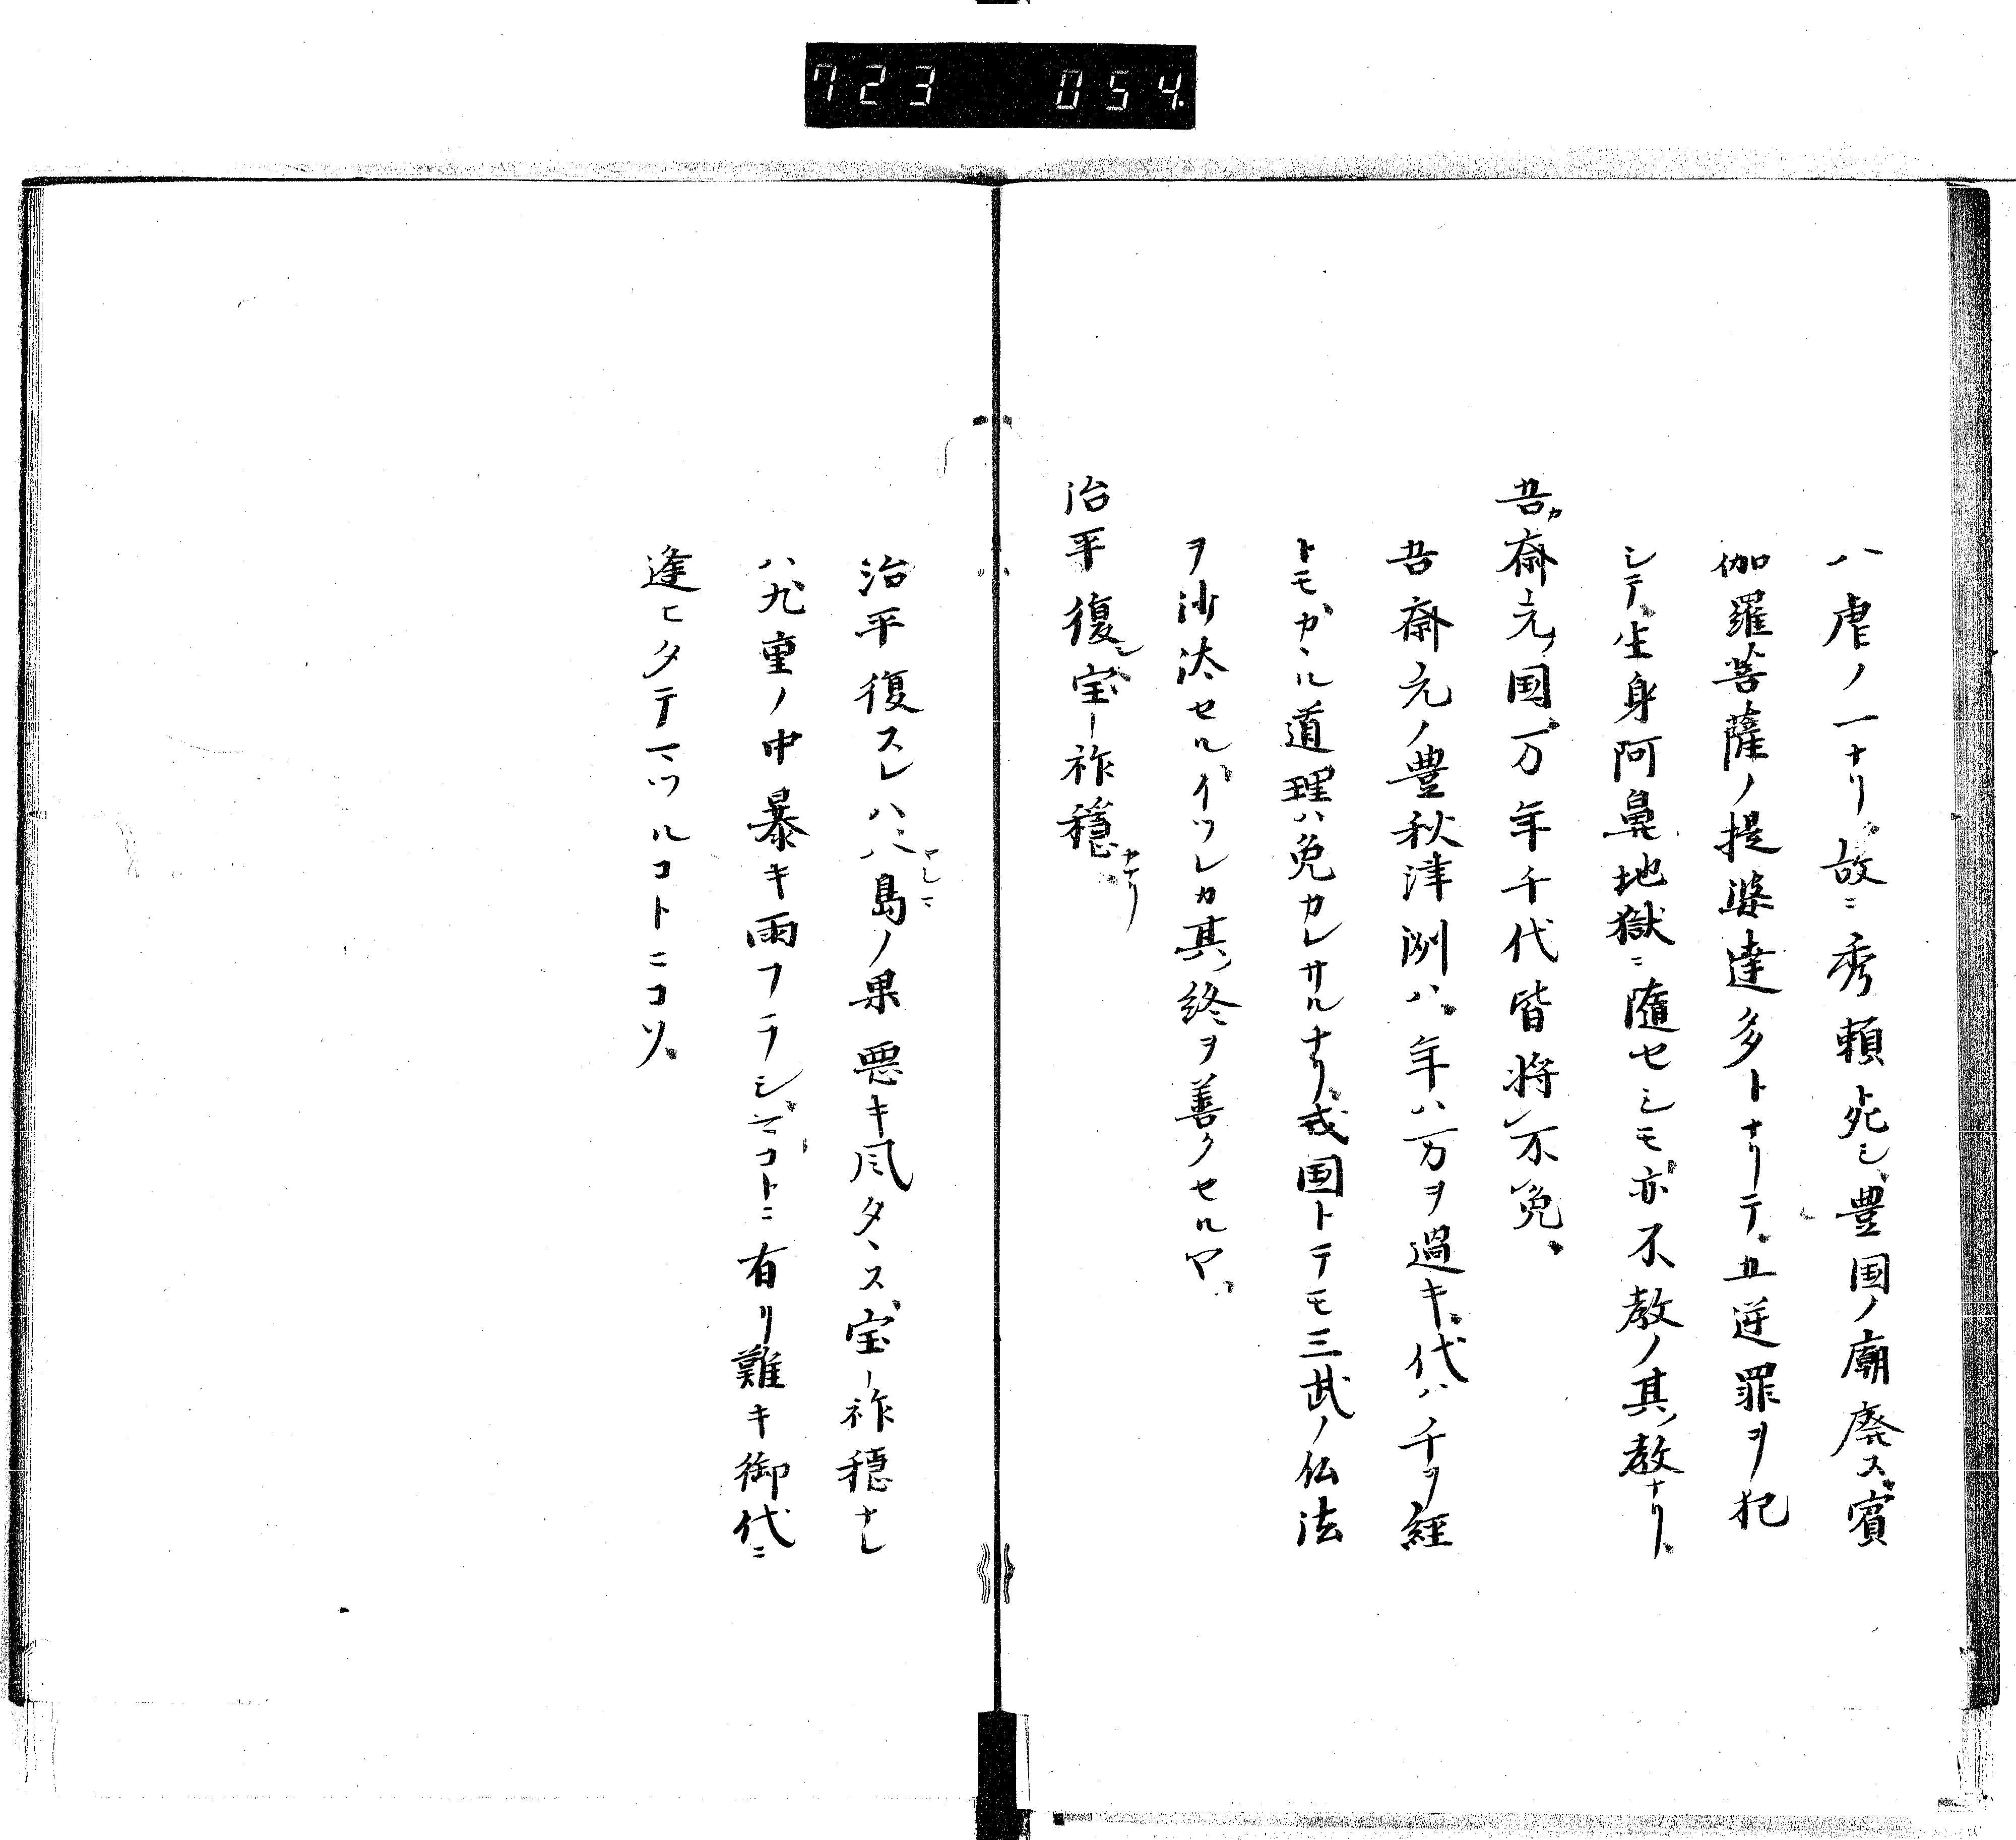 723 054
八虐ノ一ナリ故ニ秀頼死シ豊国ノ廟廃ス賓
伽羅菩薩ノ提婆達多トナリテ五逆罪ヲ犯
シテ生身阿鼻地獄ニ随セシモ亦不教ノ其教ナリ
吾カ斎元ノ国万年千代皆将不免
吾斎元ノ豊秋津洲ハ年ハ万ヲ過キ代ハ千ヲ経
トモカヽル道理ハ免カレサルナリ戎国トテモ三武ノ仏法
ヲ沙汰セルイツレカ其終ヲ善クセルヤ
治平復シ宝祚穏ナリ
治平復スレハ八島ノ果悪キ風タヽス宝祚穏ナレ
ハ九重ノ中暴キ雨フラシマコトニ有リ難キ御代ニ
逢ヒタテマツルコトニコソ